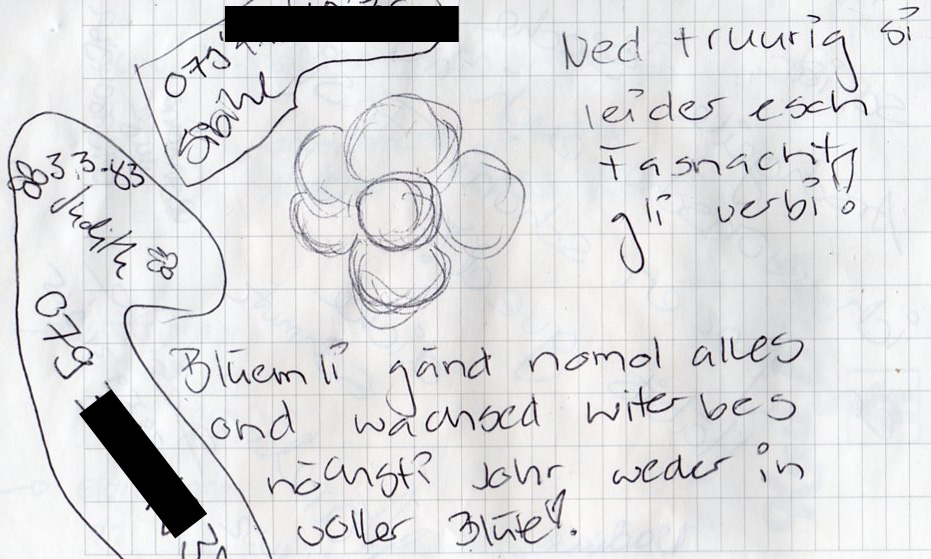 079
Ned truurig si
leider esch
Fasnacht
gli verbi!
33-83
Judith
079
Blüemli gänd nomol alles
ond wachsed witer bes
nöchst Johr weder in
voller Blüte!